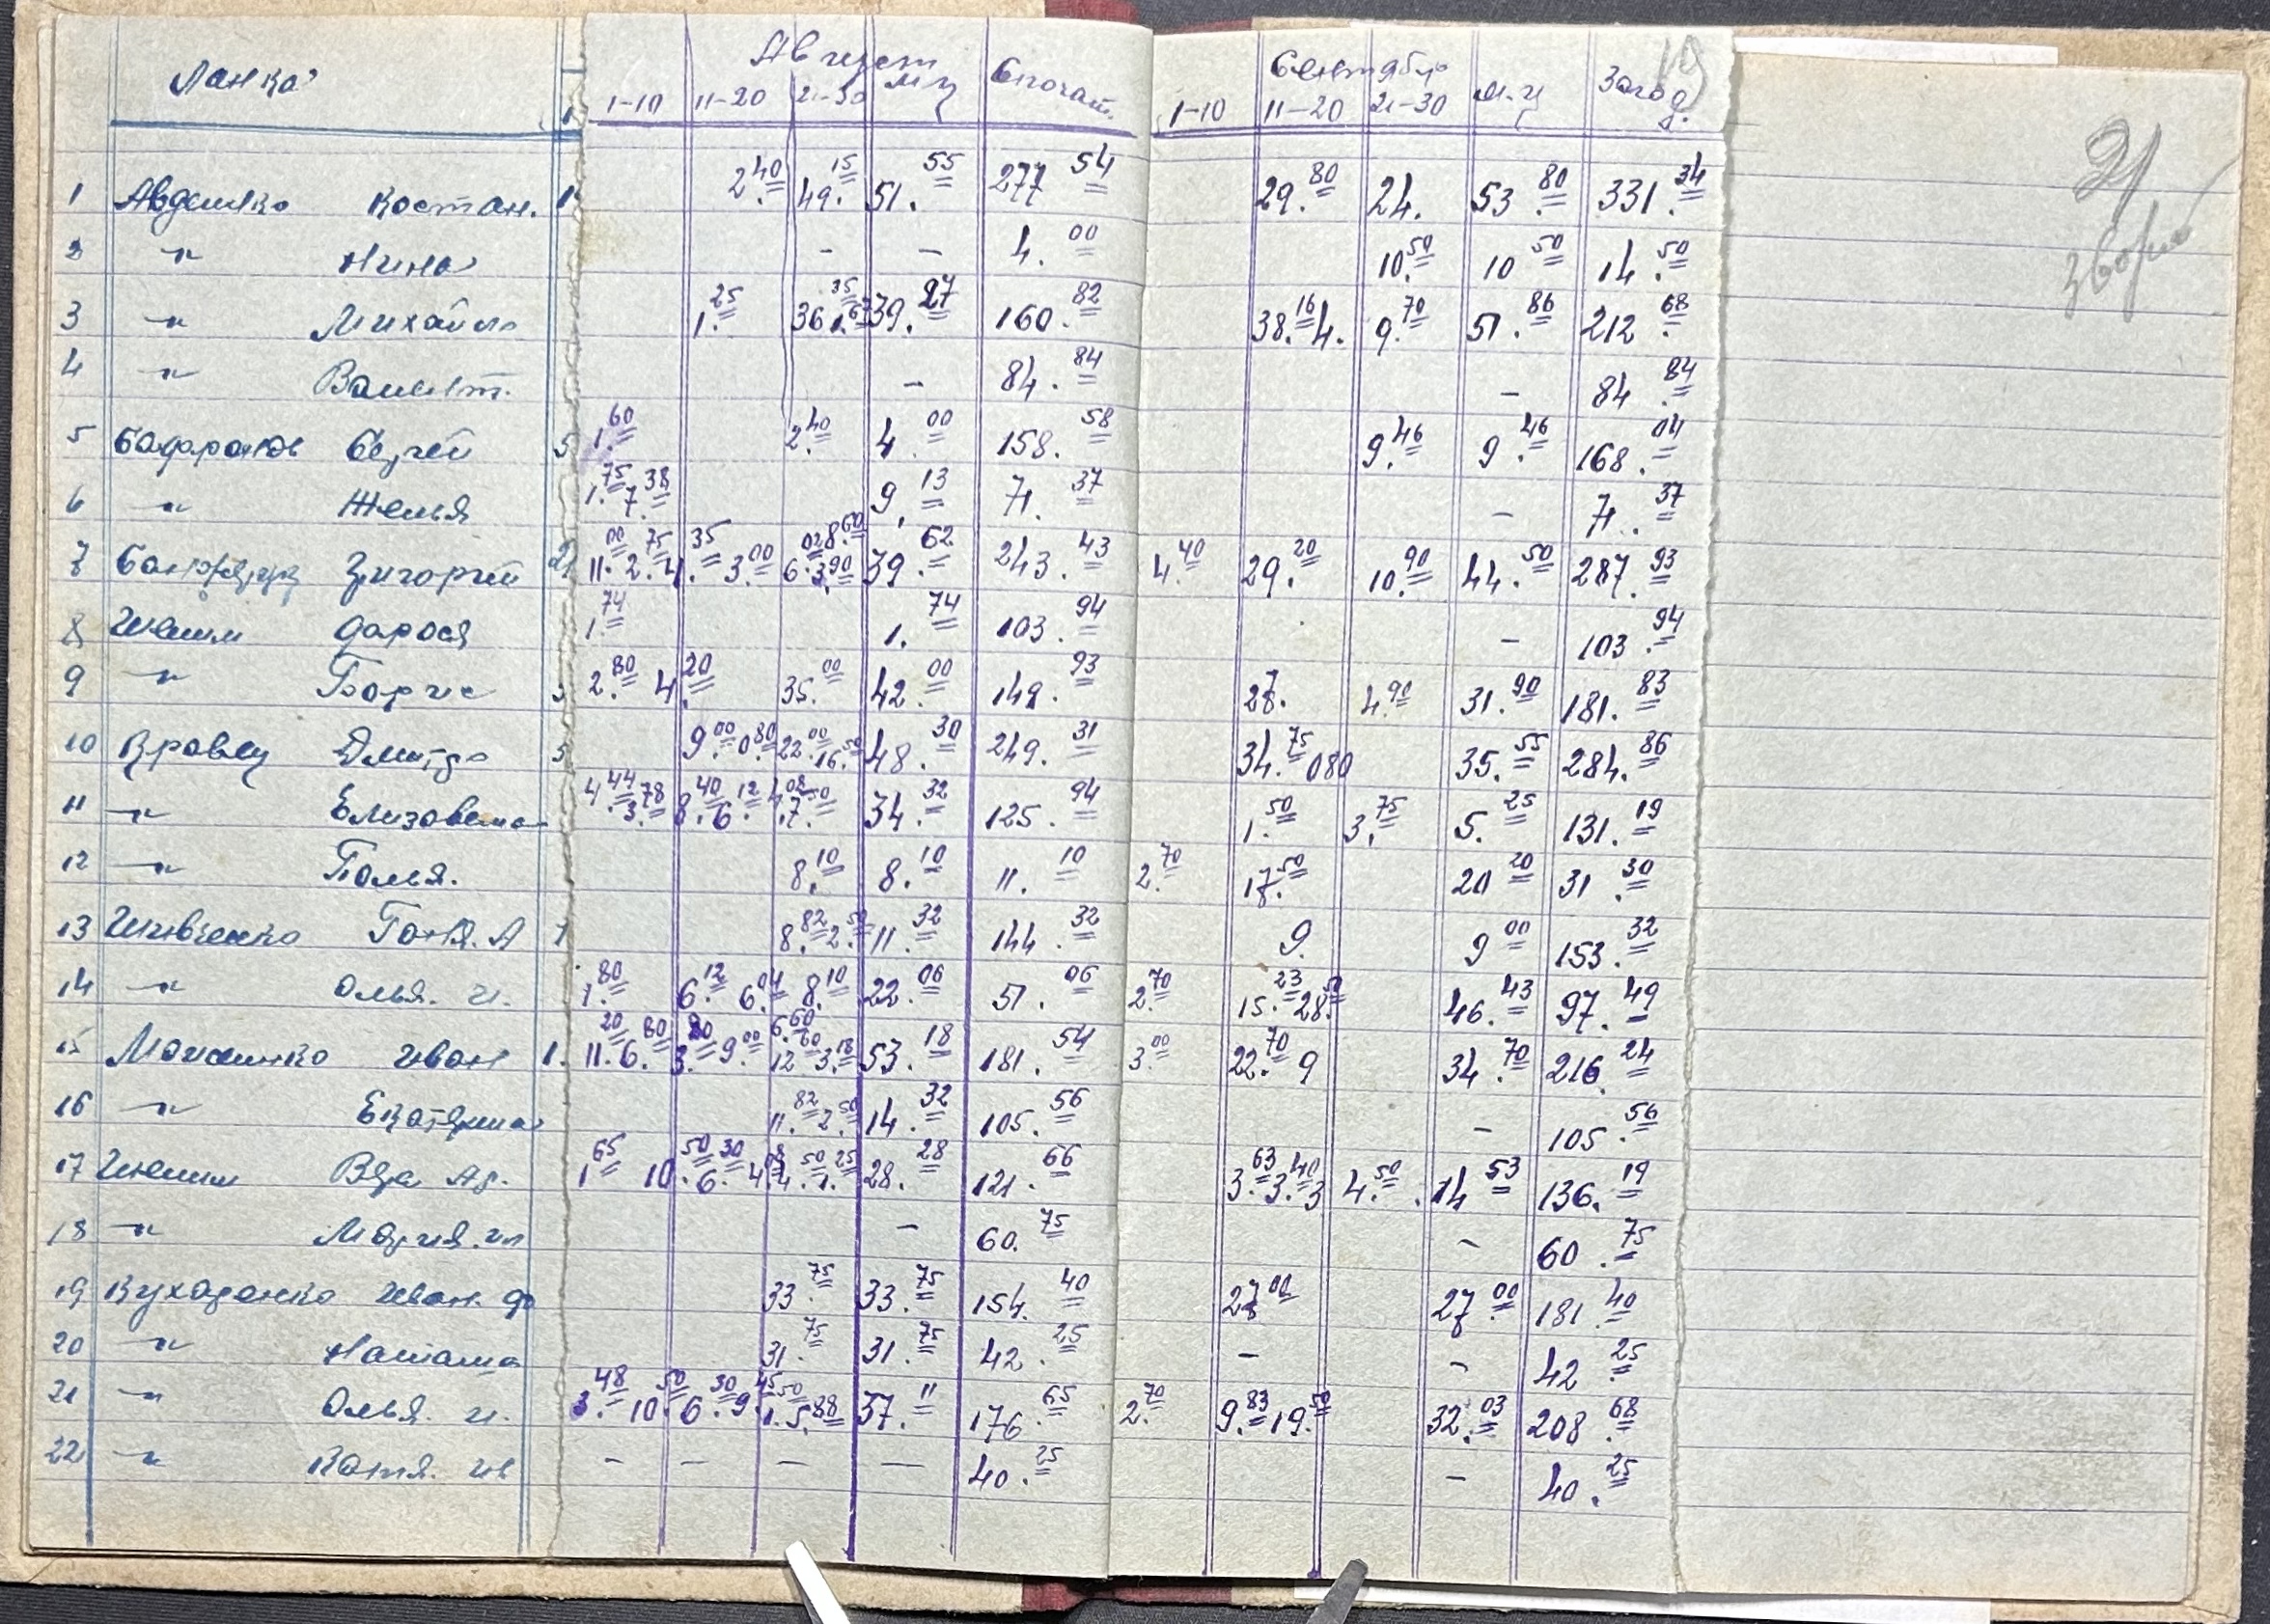 Ланка
Август
Сентябрь
1-10 11-20 21-30 м ц Спочат. 1-10 11-20 21-30 м.ц Загод.
19
21
1 Авдеенко Костан. 2.40 49.15 51.55 277 54 29.80 24. 53.80 331.34
2 " Нина - - 4.00 10.50 10 50 14.50
3 " Михайло 1.25 36 35 1.67 39.27 160.82 38.16 4. 9.70 51.86 212.68
4 " Валент. - 84.84 - 84.84
5 Сергей 1.60 2.40 4.00 158.58 9.46 9.46 168.04
6 " Женя 1.75 7.38 9.13 71.37 - 71.37
7 Григорий 11.00 2.75 4.35 3.00 6.02 8.60 3.90 39.62 243.43 4.40 29.20 10.90 44.50 287.93
8 Дарося 1.74 1.74 103.94 - 103.94
9 " Борис 2.80 4.20 35.00 42.00 149.93 27. 4.90 31.90 181.83
10 Кравец Дмитро 9.00 0.80 22.00 16.50 48.30 249.31 34.75 080 35.55 284.86
11 " Елизовета 4.44 3.78 8.40 6.12 4.08 7.50 34.32 125.94 1.50 3.75 5.25 131.19
12 " Поля. 8.10 8.10 11.10 2.70 17.50 20 20 31.30
13 Шевченко Ганя. А 8.82 2.50 11.32 144.32 9. 9 00 153.32
14 " Олья. и. 1.80 6.12 6.04 8.10 22.06 51.06 2.70 15.23 28.50 46.43 97.49
15 Иван 1. 11.20 6.80 3.80 9.00 6.60 12 60 3.18 53.18 181.54 3.00 22.70 9 34.70 216.24
16 " Екатярина 11.82 2.50 14.32 105.56 - 105.56
17 Вяра Ар. 1 65 10.50 6.30 4.08 4.50 1.25 28.28 121.66 3.63 3.40 3 4.50 14 53 136.19
18 " Мария. - 60.75 - 60.75
19 Кухаренко Иван. ф 33.75 33.75 154.40 27 00 27 00 181.40
20 " Наташа 31.75 31.75 42.25 - - 42.25
21 " Олья. и. 3.48 10.50 6.30 9.45 1.50 5.88 37.11 176.65 2.70 9.83 19.50 32.03 208.68
22 " Катя. ив - - - - 40.25 - 40.25